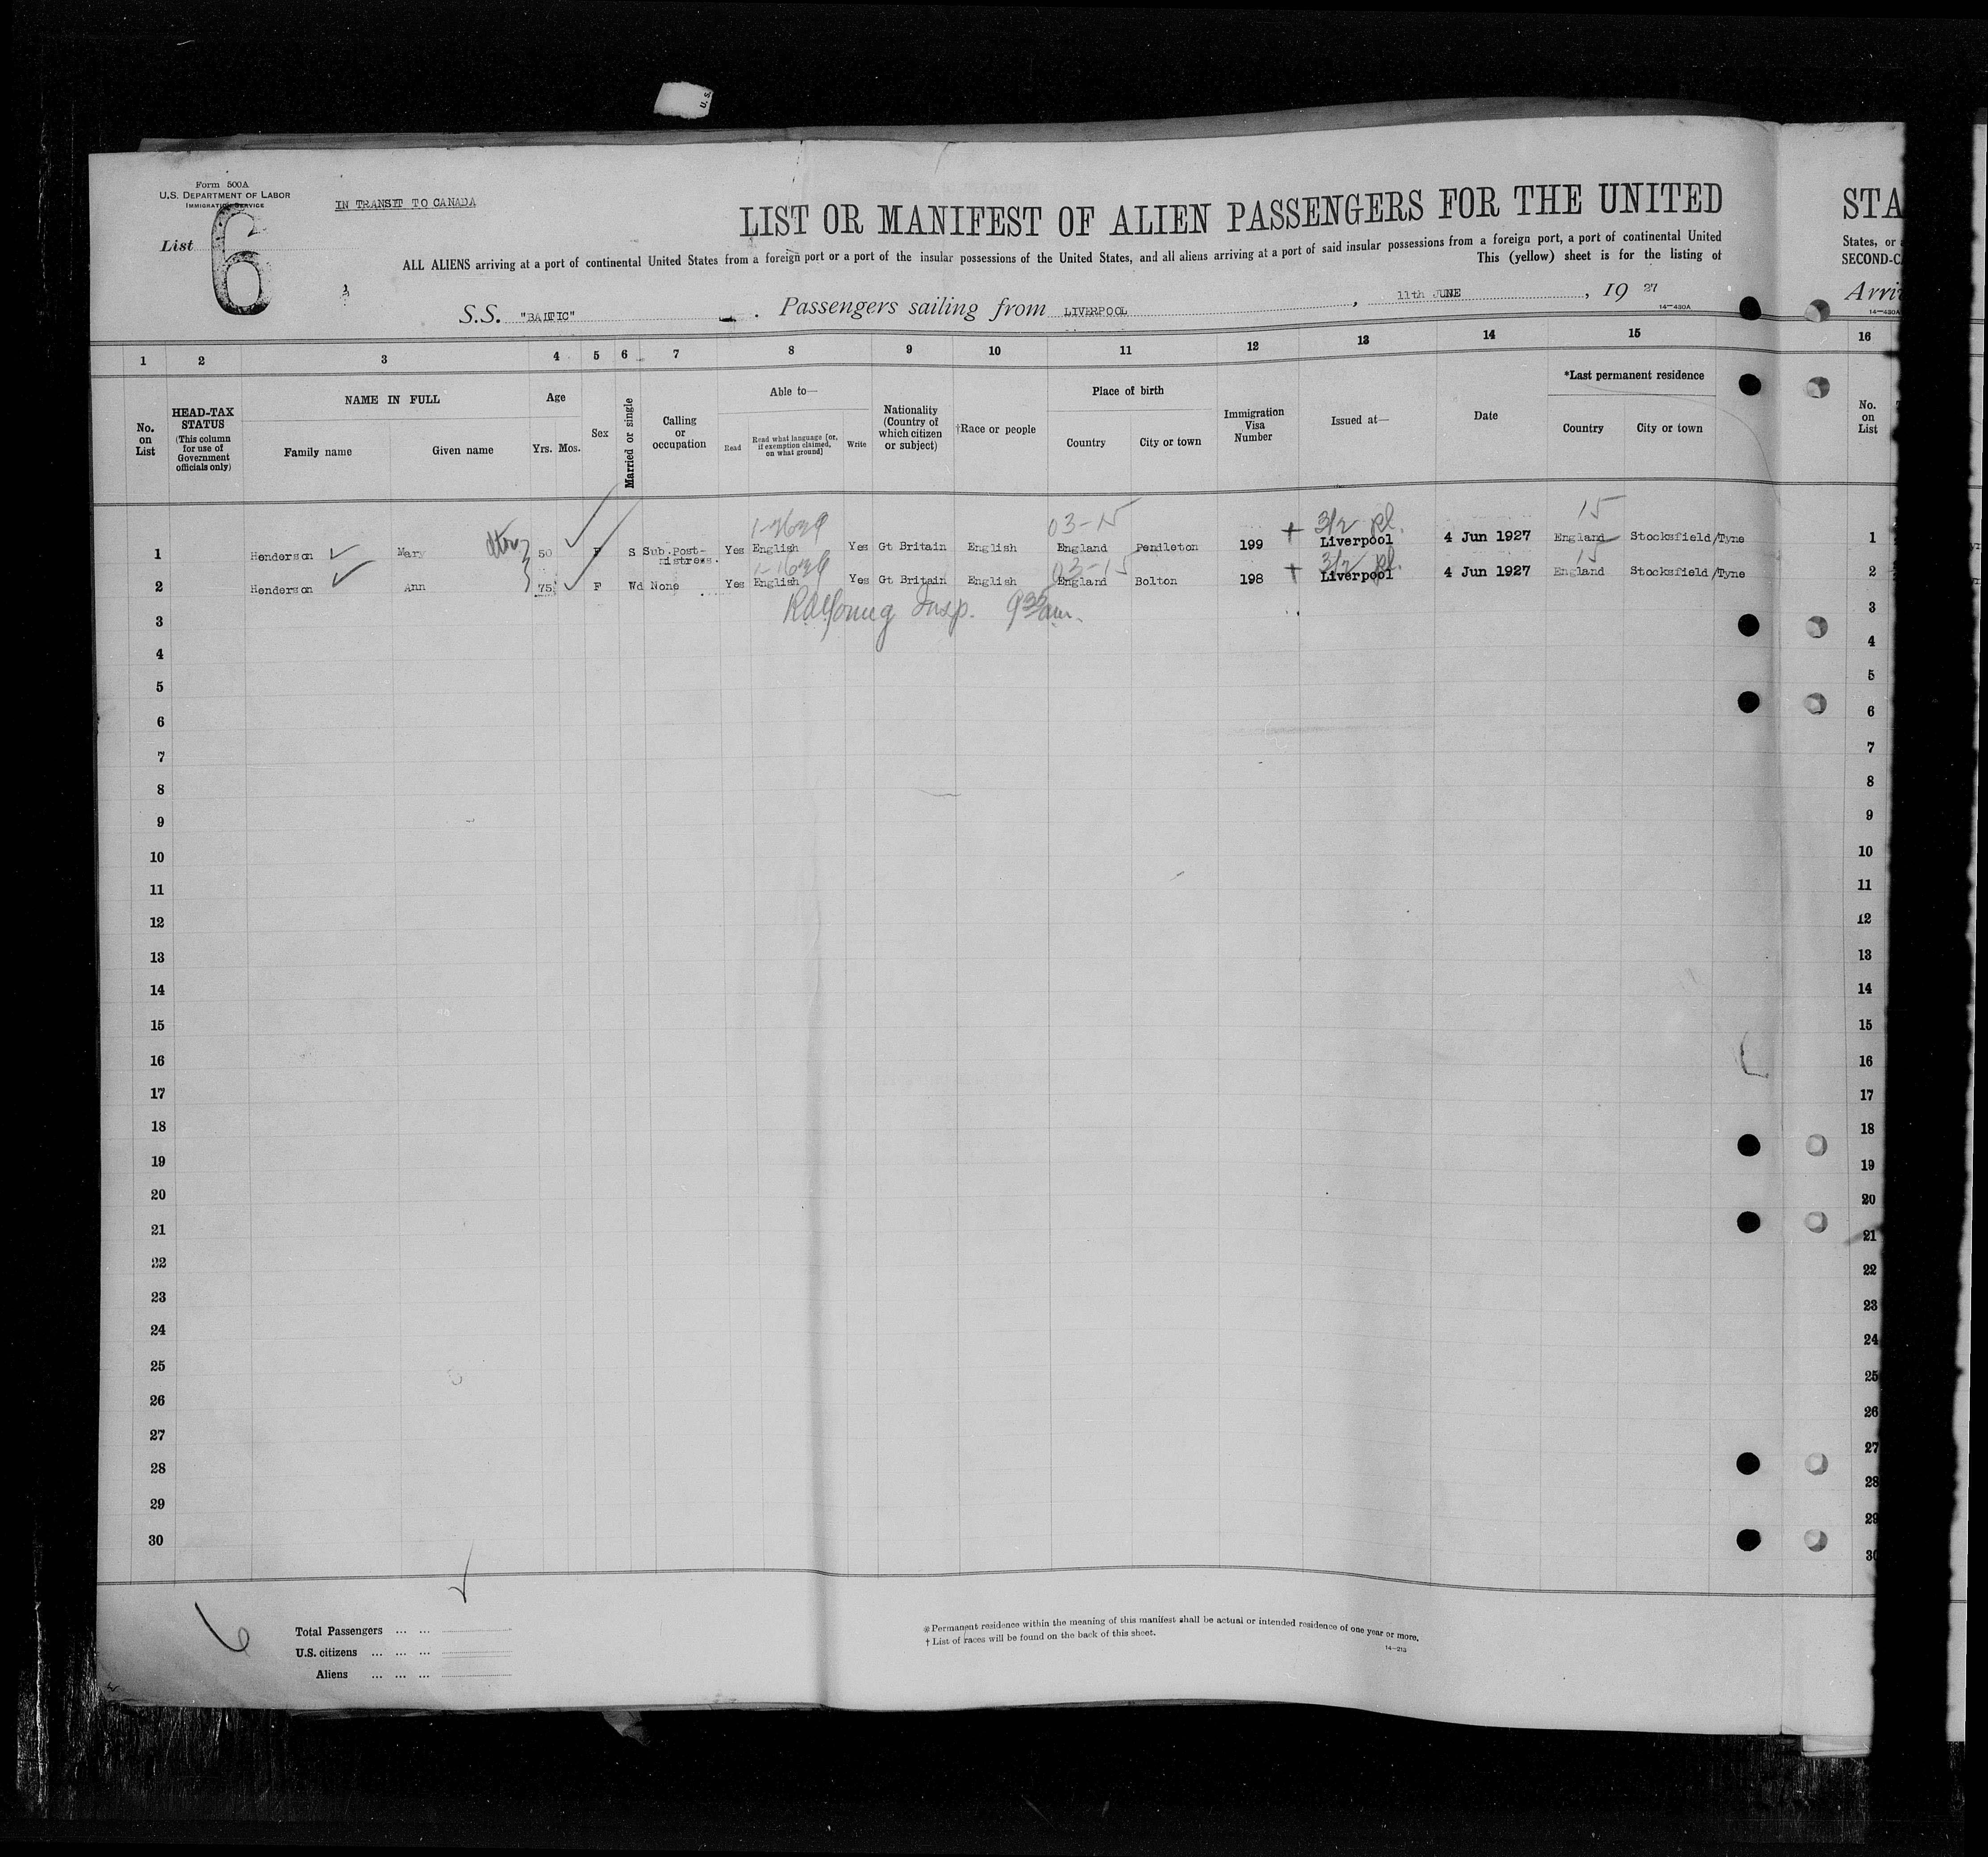 U. S.
Form 500A
U.S. DEPARTMENT OF LABOR
IMMIGRATION SERVICE
IN TRANSIT TO CANADA
List 6
LIST OR MANIFEST OF ALIEN PASSENGERS FOR THE UNITED
ALL ALIENS arriving at a port of continental United States from a foreign port or a port of the insular possessions of the United States, and all aliens arriving at a port of said insular possessions from a foreign port, a port of continental United
This (yellow) sheet is for the listing of
S.S. "BALTIC" . Passengers sailing from LIVERPOOL , 11th JUNE , 19 27
14—430A
STA
States, or
SECOND-C
Arri
14—430A
1 2 3 4 5 6 7 8 9 10 11 12 13 14 15 16
No. on List
HEAD-TAX STATUS (This column for use of Government officials only)
NAME IN FULL
Family name Given name
Age
Yrs. Mos.
Sex
Married or single
Calling or occupation
Able to—
Read Read what language [or, if exemption claimed, on what ground] Write
Nationality (Country of which citizen or subject)
†Race or people
Place of birth
Country City or town
Immigration Visa Number
Issued at—
Date
*Last permanent residence
Country City or town
No. on List
03-15 3/2 pl. 15
1 Henderson Mary 50 F S Sub.Post-mistress. Yes English Yes Gt Britain English England Pendleton 199 Liverpool 4 Jun 1927 England Stocksfield/Tyne 1
03-15 3/2 pl. 15
2 Henderson Ann 75 F Wd None Yes English Yes Gt Britain English England Bolton 198 Liverpool 4 Jun 1927 England Stocksfield/Tyne 2
Young Insp. 9 35 am.
3 3
4 4
5 5
6 6
7 7
8 8
9 9
10 10
11 11
12 12
13 13
14 14
15 15
16 16
17 17
18 18
19 19
20 20
21 21
22 22
23 23
24 24
25 25
26 26
27 27
28 28
29 29
30 30
6
Total Passengers ... ...
U.S. citizens ... ... ...
Aliens ... ... ...
*Permanent residence within the meaning of this manifest shall be actual or intended residence of one year or more.
† List of races will be found on the back of this sheet.
14—213